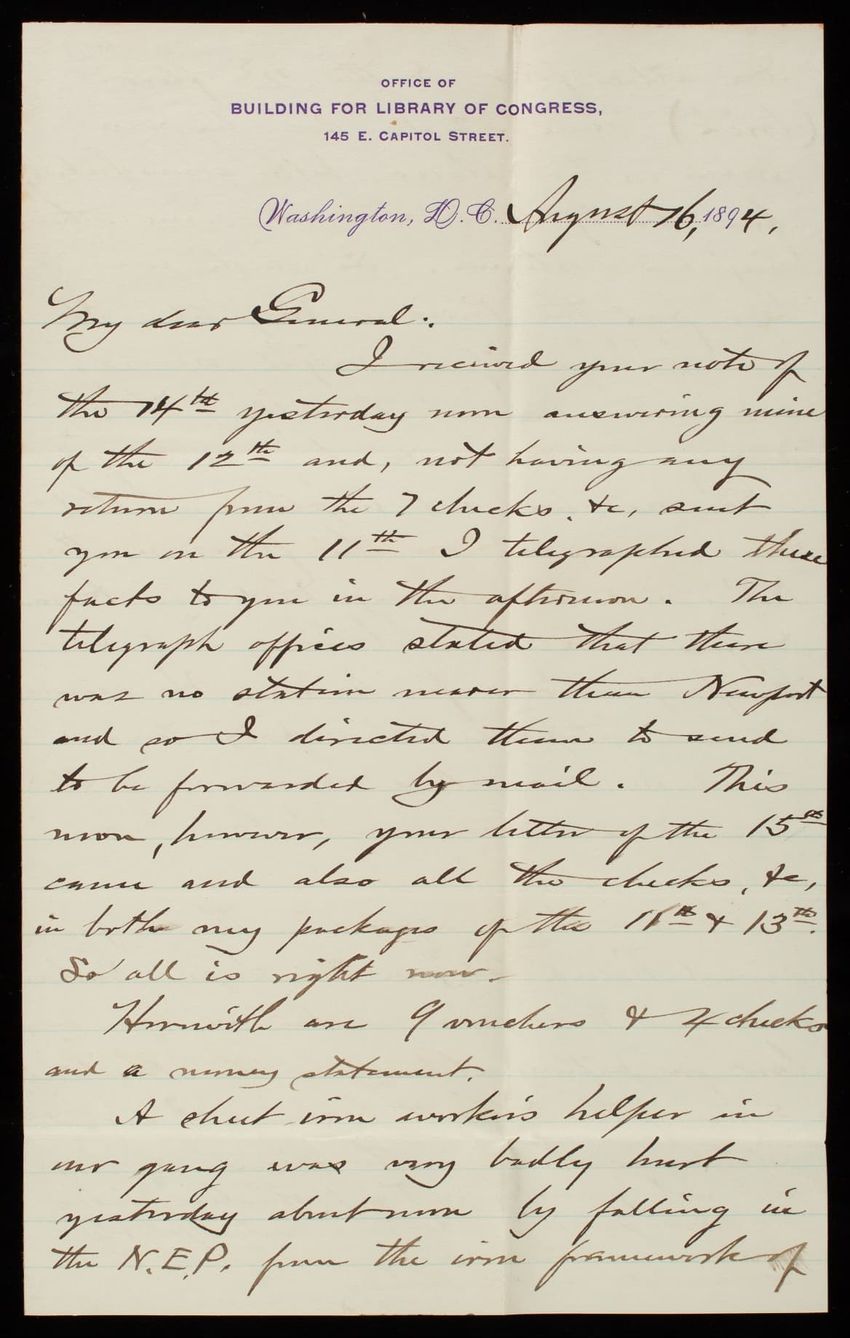 OFFICE OF
BUILDING FOR LIBRARY OF CONGRESS,
145 E. CAPITOL STREET.
Washington, D. C. August 16, 1894,
My dear General:
I received your note of
the 14th yesterday noon answering mine
of the 12th and, not having any
return from the 7 checks, &c, sent
you on the 11th I telegraphed these
facts to you in the afternoon. The
telegraph offices stated that there
was no station nearer than Newport
and so I directed them to send
to be forwarded by mail. This
noon, however, your letter of the 15th
came and also all the checks, &c,
in both my packages of the 11th & 13th.
So all is right now.
Herewith are 9 vouchers & 4 checks
and a money statement.
A sheet iron worker's helper in
our gang was very badly hurt
yesterday about noon by falling in
the N.E.P. from the iron framework of